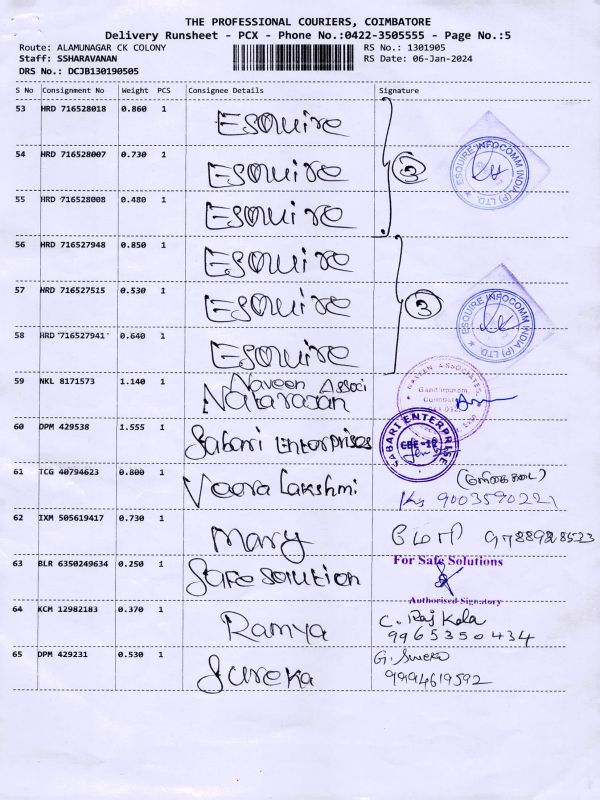 THE PROFESSIONAL COURIERS, COIMBATORE
Delivery Runsheet - PCX - Phone No.:0422-3505555 - Page No.:5
Route: ALAMUNAGAR CK COLONY RS No.: 1301905
Staff: SSHARAVANAN RS Date: 06-Jan-2024
DRS No.: DCJB130190505
S No Consignment No Weight PCS Consignee Details Signature
53 HRD 716528018 0.860 1 ESQUIRE
54 HRD 716528007 0.730 1 ESQUIRE
3
ESQUIRE INFOCOMM INDIA (P) LTD.
55 HRD 716528008 0.480 1 ESQUIRE
56 HRD 716527948 0.850 1 ESQUIRE
57 HRD 716527515 0.530 1 ESQUIRE
3
ESQUIRE INFOCOMM INDIA (P) LTD.
58 HRD 716527941 0.640 1 ESQUIRE
59 NKL 8171573 1.140 1 Naveen Associ
Natarasan
ASSOCIATES
Gandhipuram,
60 DPM 429538 1.555 1 Sabari Enterprises
SABARI ENTERPRISE
CBE-12
61 TCG 40794623 0.800 1 Veera Lakshmi
9003590221
62 IXM 505619417 0.730 1 Mary
மேரி 9788928523
63 BLR 6350249634 0.250 1 Safe Solution
For Safe Solutions
Authorised Signatory
64 KCM 12982183 0.370 1 Ramya
C. Raj Kala
9965350434
65 DPM 429231 0.530 1 Sureka
9994619592